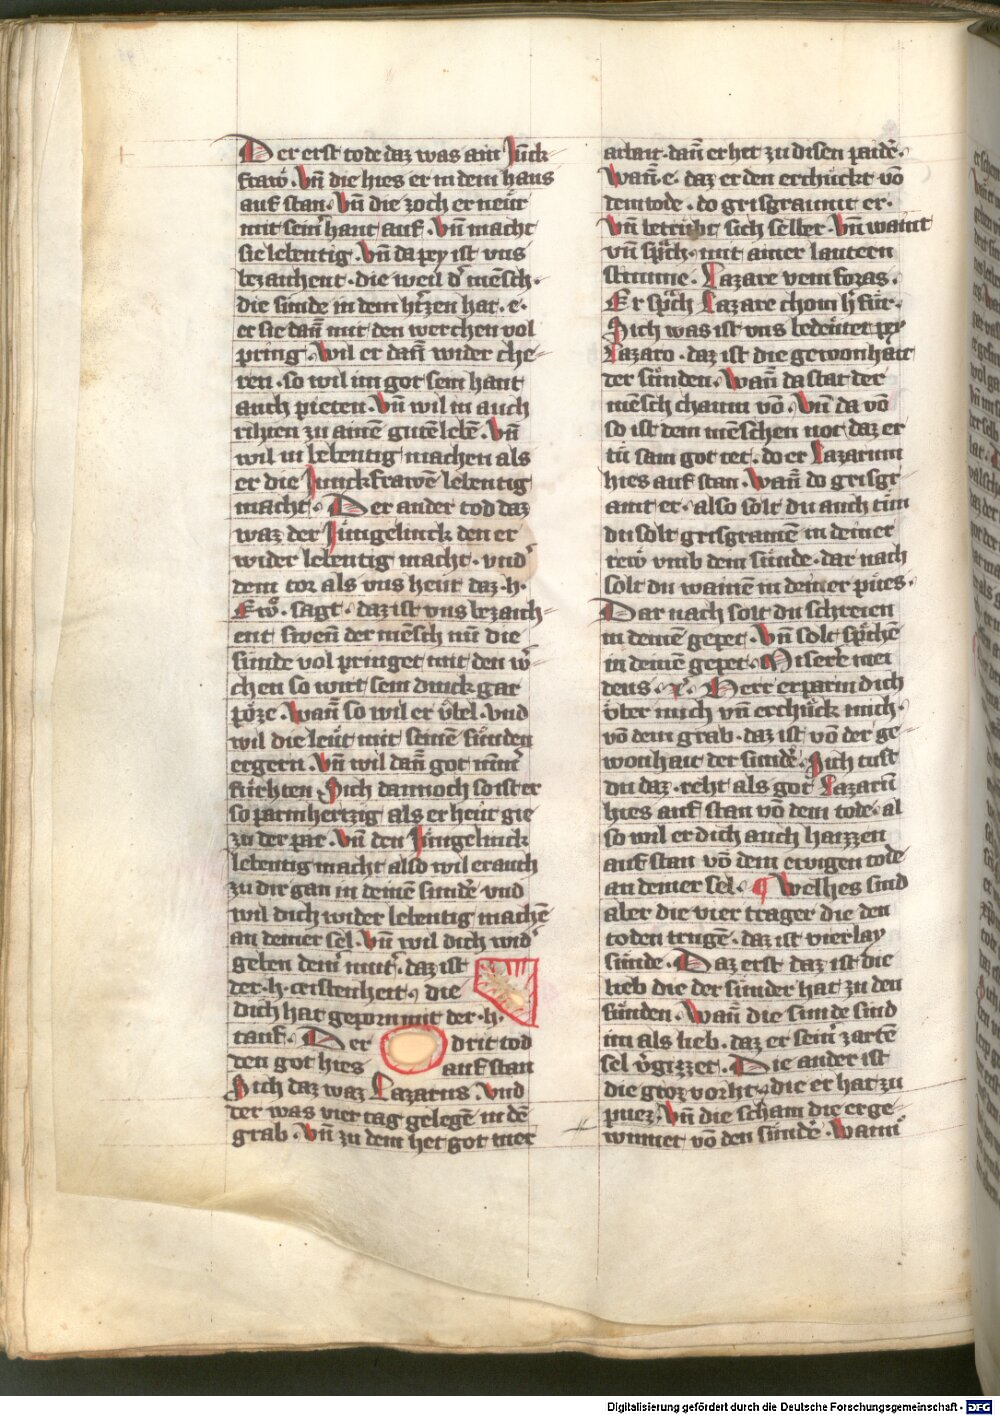 Der erst tode daz was ain Junck
frawe. Vn̄ die hies er in dem haus
auf stan. Vn̄ die zoch er neur
mit seinr hant auf. Vn̄ macht
sie lebentig. Vn̄ da pey ist vns
bezaichent. die weil dr mēsch.
die sünde in dem hrczen hat. e.
er sie dan̄ mit den werchen vol
pring. Wil er dan̄ wider che-
ren. so wil im got sein hant
auch pieten. Vn̄ wil in auch
rihten zu aīnē gutē lebē. Vn̄
wil in lebentig machen als
er die Junckfrawē lebentig
macht. Der ander tod daz
waz der Jüngelinck den er
wider lebentig macht. vnd
dem tor als vns heut daz .h.
Ewo. sagt. daz ist vns bezaich-
ent swen̄ der mēsch nū die
sünde vol pringet mit den w̄-
chen so wirt sein dinck gar
pöze. Wan̄ so wil er v̈bel. Vnd
wil die leüt mit seinē sünden
ergern. Vn̄ wil dan̄ got nimr
fürchten. Sich dannoch so ist er
so parmhertzig als er heut gie
zu der par. Vn̄ den Jüngelinck
lebentig macht also wil er auch
zu dir gan in deinē sündē vnd
wil dich wider lebentig machē
an deiner sel. Vn̄ wil dich wid
geben deinr mutr. daz ist
der .h. cristenheit. die
dich hat geporn mit der .h.
tauf. Der drit tod
den got hies auf stan
Sich daz waz Lazarus. Vnd
der was vier tag gelegē in dē
grab. Vn̄ zu dem het got mer
arbait. dan̄ er het zu disen paidē.
Wan̄ .e. daz er den erchückt vō
dem tode. do grisgraumt er.
Vn̄ betrübt sich selber. Vn̄ waint
vn̄ sprch. mit ainer lautern
stimme. Lazare veni foras.
Er sprch Lazare chom h für.
Sich was ist vns bedeütet pey
Lazaro. daz ist die gewonhait
der sünden. Wan̄ da stat der
mēsch chaum vō. Vn̄ da vō
so ist dem mēschen not daz er
tü sam got tet. do er Lazarum
hies auf stan. Wan̄ do grisgr
amt er. also solt du auch tün
du solt grisgramē in deiner
rew vmb dem sünde. dar nach
solt du wainē in deiner pues.
Dar nach solt du schreien
in deinē gepet. Vn̄ solt sprchē
in deinē gepet. Miserere mei
deus. Herr erparm dich
v̈ber mich vn̄ erchück mich.
vō dem grab. daz ist vō der ge-
wonhait der sünde. Sich tust
du daz. reht als got Lazarū
hies auf stan vō dem tode. al
so wil er dich auch haizzen
auf stan vō dem ewigen tode
an deiner sel. ¶ Welhes sind
aber die vier trager die den
toden trugē. daz ist vierlay
sünde. Daz erst daz ist die
lieb die der sünder hat zu den
sünden. Wan̄ die sünde sind
im als lieb. daz er seinr zartē
sel v̈gizzet. Die ander ist
die groz vorht. die er hat zu
puez. Vn̄ die scham die er ge-
winnet vō den sündē. Wann
Digitalisierung gefördert durch die Deutsche Forschungsgemeinschaft - DFG